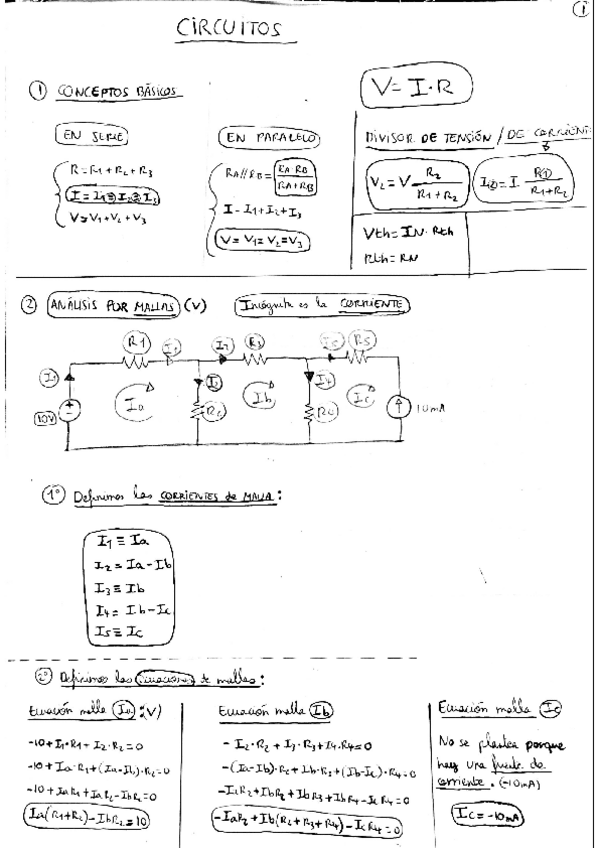 1
CIRCUITOS
① CONCEPTOS BÁSICOS
V = I·R
EN SERIE
R = R1 + R2 + R3
I = I1 ≡ I2 ≡ I3
V = V1 + V2 + V3
EN PARALELO
RA//RB = RA·RB / RA+RB
I = I1 + I2 + I3
V = V1 = V2 = V3
DIVISOR DE TENSIÓN / DE CORRIENTE
V2 = V R2 / R1 + R2
= I· / R1 + R2
Vth = IN · Rth
Rth = RN
② ANÁLISIS POR MALLAS (V) Incógnita es la CORRIENTE
R1 I1 I3 R3 I5 R5
I1 I2 I4
10V Ia R2 Ib R4 Ic 10mA
1º Definimos las CORRIENTES de MALLA:
I1 ≡ Ia
I2 = Ia - Ib
I3 ≡ Ib
I4 = Ib - Ic
I5 ≡ Ic
2º Definimos las Ecuaciones de mallas:
Ecuación malla Ia: (V)
-10 + I1·R1 + I2·R2 = 0
-10 + Ia·R1 + (Ia-Ib)·R2 = 0
-10 + IaR1 + IaR2 - IbR2 = 0
Ia(R1+R2) - IbR2 = 10
Ecuación malla Ib
- I2·R2 + I3·R3 + I4·R4 = 0
-(Ia-Ib)·R2 + Ib·R3 + (Ib-Ic)·R4 = 0
-IaR2 + IbR2 + IbR3 + IbR4 - IcR4 = 0
-IaR2 + Ib(R2+R3+R4) - IcR4 = 0
Ecuación malla Ic
No se plantea porque
hay una fuente de
corriente. (-10mA)
Ic = -10mA